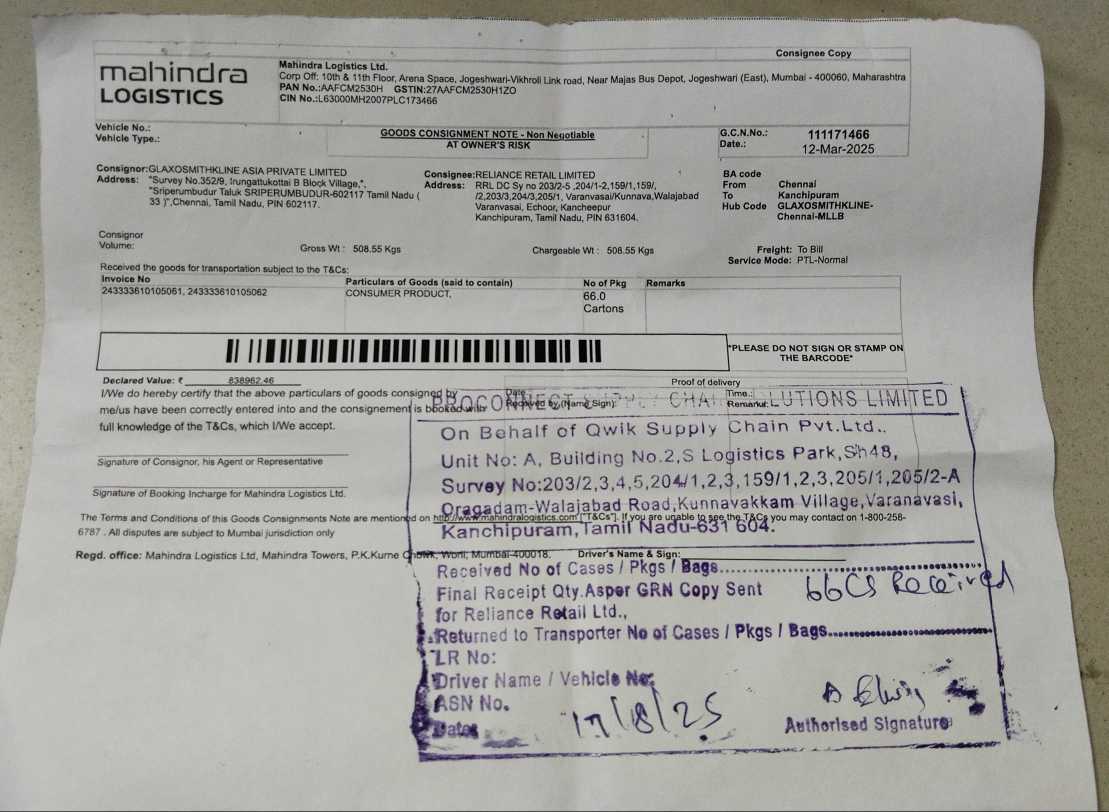 Consignee Copy
mahindra
LOGISTICS
Mahindra Logistics Ltd.
Corp Off: 10th & 11th Floor, Arena Space, Jogeshwari-Vikhroli Link road, Near Majas Bus Depot, Jogeshwari (East), Mumbai - 400060, Maharashtra
PAN No.:AAFCM2530H GSTIN:27AAFCM2530H1ZO
CIN No.:L63000MH2007PLC173466
Vehicle No.:
Vehicle Type.:
GOODS CONSIGNMENT NOTE - Non Negotiable
AT OWNER'S RISK
G.C.N.No.: 111171466
Date.: 12-Mar-2025
Consignor:GLAXOSMITHKLINE ASIA PRIVATE LIMITED
Address: "Survey No.352/9, Irungattukottai B Block Village,",
"Sriperumbudur Taluk SRIPERUMBUDUR-602117 Tamil Nadu (
33 )",Chennai, Tamil Nadu, PIN 602117.
Consignee:RELIANCE RETAIL LIMITED
Address: RRL DC Sy no 203/2-5 ,204/1-2,159/1,159/
/2,203/3,204/3,205/1, Varanvasi/Kunnava,Walajabad
Varanvasi, Echoor, Kancheepur
Kanchipuram, Tamil Nadu, PIN 631604.
BA code
From Chennai
To Kanchipuram
Hub Code GLAXOSMITHKLINE-
Chennai-MLLB
Consignor
Volume:
Gross Wt : 508.55 Kgs
Chargeable Wt : 508.55 Kgs
Freight: To Bill
Service Mode: PTL-Normal
Received the goods for transportation subject to the T&Cs:
Invoice No Particulars of Goods (said to contain) No of Pkg Remarks
243333610105061, 243333610105062 CONSUMER PRODUCT, 66.0
Cartons
*PLEASE DO NOT SIGN OR STAMP ON
THE BARCODE*
Declared Value: ₹ 838962.46
Proof of delivery
I/We do hereby certify that the above particulars of goods consigned by
me/us have been correctly entered into and the consignement is booked with
full knowledge of the T&Cs, which I/We accept.
Date
Time.:
Received by.(Name Sign):
Remarks:
Signature of Consignor, his Agent or Representative
Signature of Booking Incharge for Mahindra Logistics Ltd.
The Terms and Conditions of this Goods Consignments Note are mentioned on http://www.mahindralogistics.com ["T&Cs"]. If you are unable to see the T&Cs you may contact on 1-800-258-
6787 . All disputes are subject to Mumbai jurisdiction only
Regd. office: Mahindra Logistics Ltd, Mahindra Towers, P.K.Kurne Chowk, Worli, Mumbai-400018. Driver's Name & Sign:
PROCONNECT SUPPLY CHAIN SOLUTIONS LIMITED
On Behalf of Qwik Supply Chain Pvt.Ltd.,
Unit No: A, Building No.2,S Logistics Park,Sh48,
Survey No:203/2,3,4,5,204/1,2,3,159/1,2,3,205/1,205/2-A
Oragadam-Walajabad Road,Kunnavakkam Village,Varanavasi,
Kanchipuram,Tamil Nadu-631 604.
Received No of Cases / Pkgs / Bags
66CS Received
Final Receipt Qty.Asper GRN Copy Sent
for Reliance Retail Ltd.,
Returned to Transporter No of Cases / Pkgs / Bags
LR No:
Driver Name / Vehicle No:
ASN No.
Date: 17/8/25
Authorised Signature